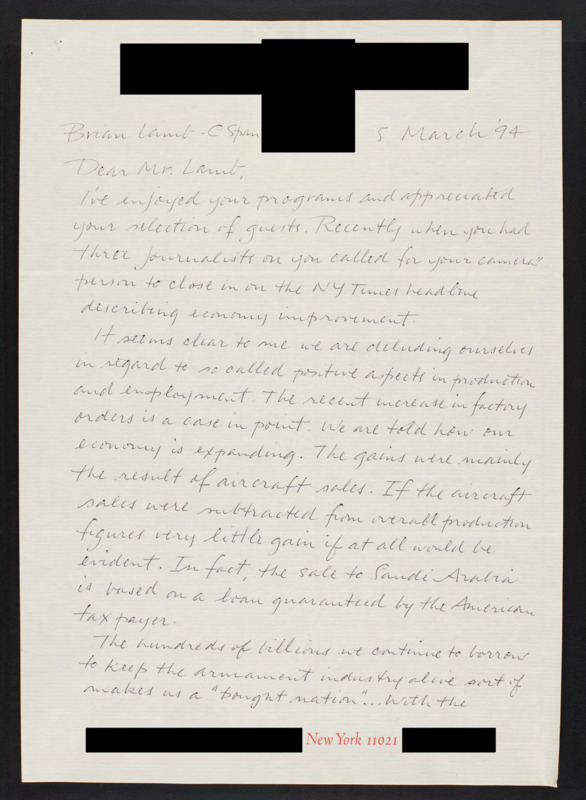 Brian Lamb - C Span
5 March '94
Dear Mr. Lamb,
I've enjoyed your programs and appreciated
your selection of guests. Recently when you had
three journalists on you called for your camera"
person to close in on the NY Times headline
describing economy improvement.
It seems clear to me we are deluding ourselves
in regard to so called positive aspects in production
and employment. The recent increase in factory
orders is a case in point. We are told how our
economy is expanding. The gains were mainly
the result of aircraft sales. If the aircraft
sales were subtracted from overall production
figures very little gain if at all would be
evident. In fact, the sale to Saudi Arabia
is based on a loan guaranteed by the American
tax payer.
The hundreds of billions we continue to borrow
to keep the armament industry alive sort of
makes us a "bought nation"... With the
New York 11021